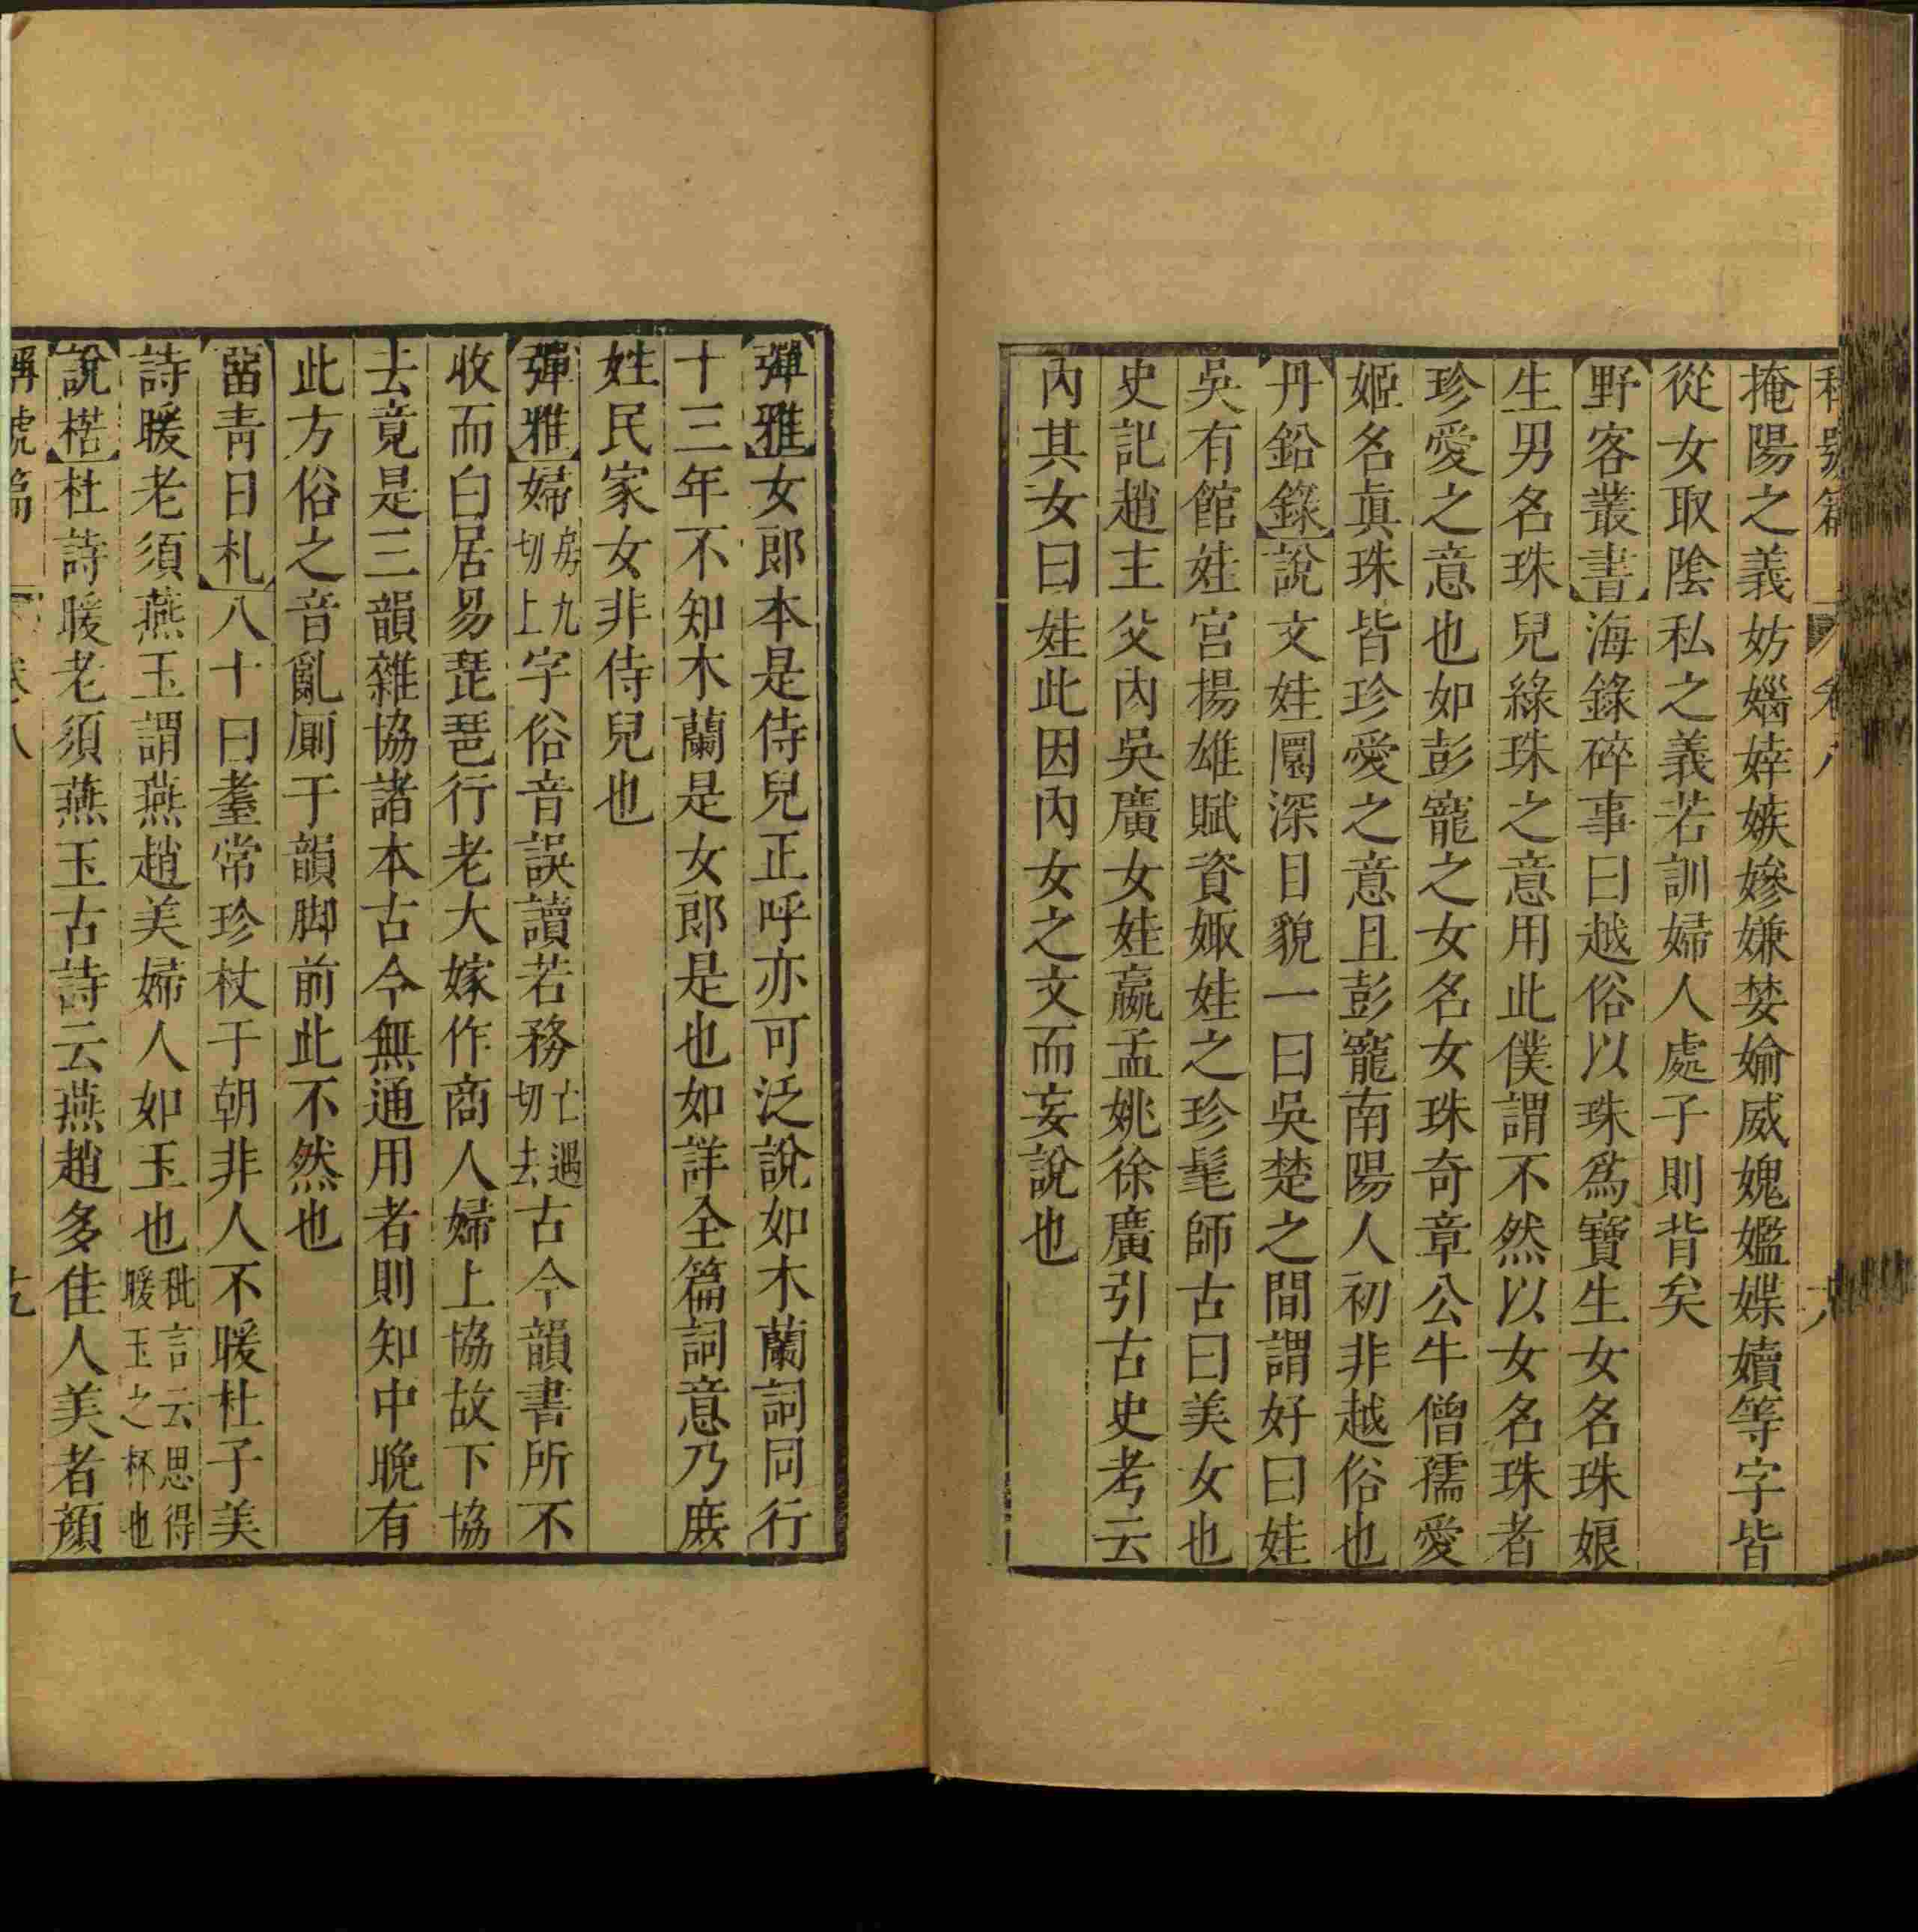 掩陽之義妨㛴婞嫉嫪嫌婪婾威媿㜮媟嬻等字皆
從女取陰私之義若訓婦人處子則背矣
野客叢書海錄碎事曰越俗以珠爲寶生女名珠娘
生男名珠兒綠珠之意用此僕謂不然以女名珠者
珍愛之意也如彭寵之女名女珠奇章公牛僧孺愛
姬名眞珠皆珍愛之意且彭寵南陽人初非越俗也
丹鉛錄說文娃圜深目貌一曰吳楚之間謂好曰娃
吳有館娃宮揚雄賦資娵娃之珍髢師古曰美女也
史記趙主父內吳廣女娃嬴孟姚徐廣引古史考云
內其女曰娃此因內女之文而妄說也
彈雅女郎本是侍兒正呼亦可泛說如木蘭詞同行
十三年不知木蘭是女郎是也如詳全篇詞意乃庻
姓民家女非侍兒也
彈雅婦房九切上字俗音誤讀若務亡遇切去古今韻書所不
收而白居易琵琶行老大嫁作商人婦上協故下協
去竟是三韻雜協諸本古今無通用者則知中晚有
此方俗之音亂厠于韻脚前此不然也
畱青日札八十曰耋常珍杖于朝非人不暖杜子美
詩暖老須燕玉謂燕趙美婦人如玉也秕言云思得暖玉之杯也
說楛杜詩暖老須燕玉古詩云燕趙多佳人美者顏